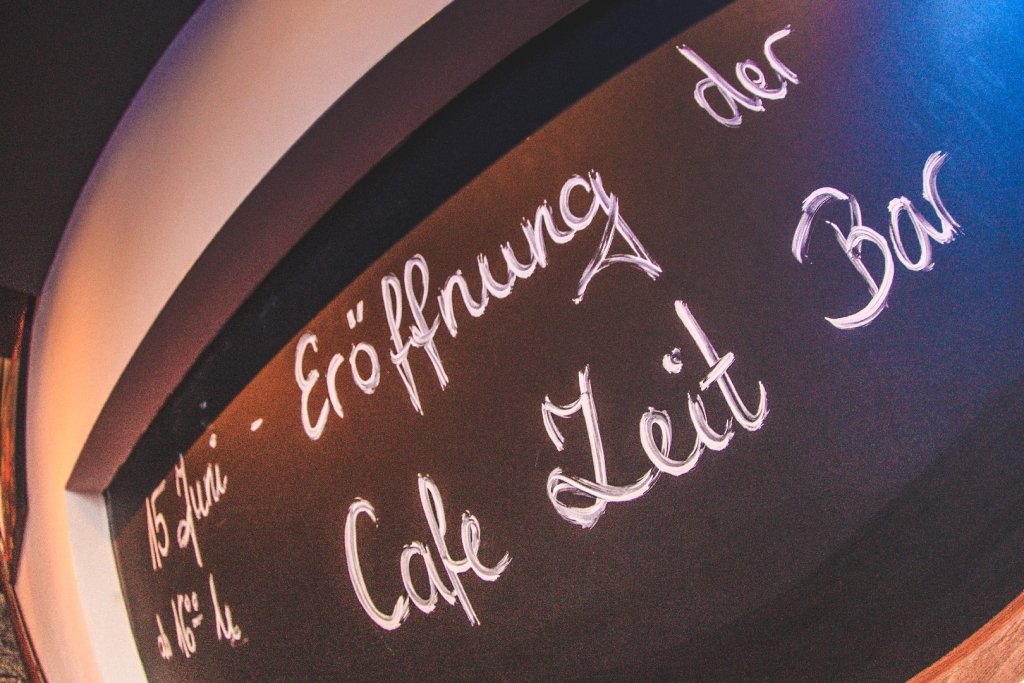 15 Juni - Eröffnung der
ab 16⁰⁰ h
Cafe Zeit Bar